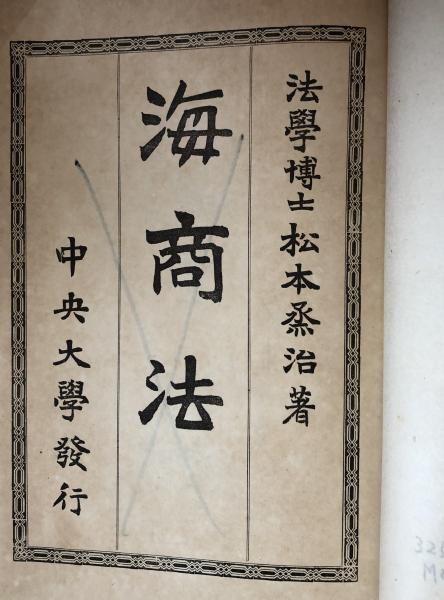 法學博士松本烝治著
海商法
中央大學發行